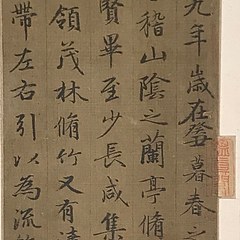 九年歲在癸暮春之
稽山陰之蘭亭脩
賢畢至少長咸集
領茂林脩竹又有清
帶左右引以為流